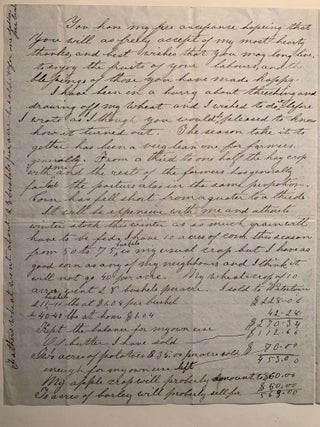 You have my free acceptance hoping that
you will as freely accept of my most hearty
thanks and best wishes that you may long live
to enjoy the fruits of your labours, and the
blessings of those you have made happy.
I have been in a hurry about threshing and
drawing off my wheat and I wished to do it before
I wrote as I though you would be pleased to know
how it turned out. The season take it to
gether has been a very lean one for farmers
generally. From a third to one half the hay crop
with and the rest of the farmers has generally
failed the pasture also in the same proportion
Corn has fell short from a quater to a thirde
It will be expensive with me and others to
winter stock this winter as as much grain will
have to be fed. I have 10 acres of corn this season
from 50 to 75 bushels is my usual crop but I have as
good corn as any of my neighbours and I think it
will not go 40 per acre. My wheat crop of 10
acres went 28 bushels per acre. I sold to Watertown
bushels at $1.08 per bushel $228.06
40 at home $1.04 42-28
Kept the balance for my own use $270.34
Of butter I have sold $112.66
Two acres of potatoes $35.00 per acre sold $70.00
enough for my own use left 453.00
My apple crop will probely amount to $60.00
acres of barley will probely sell for $50.00